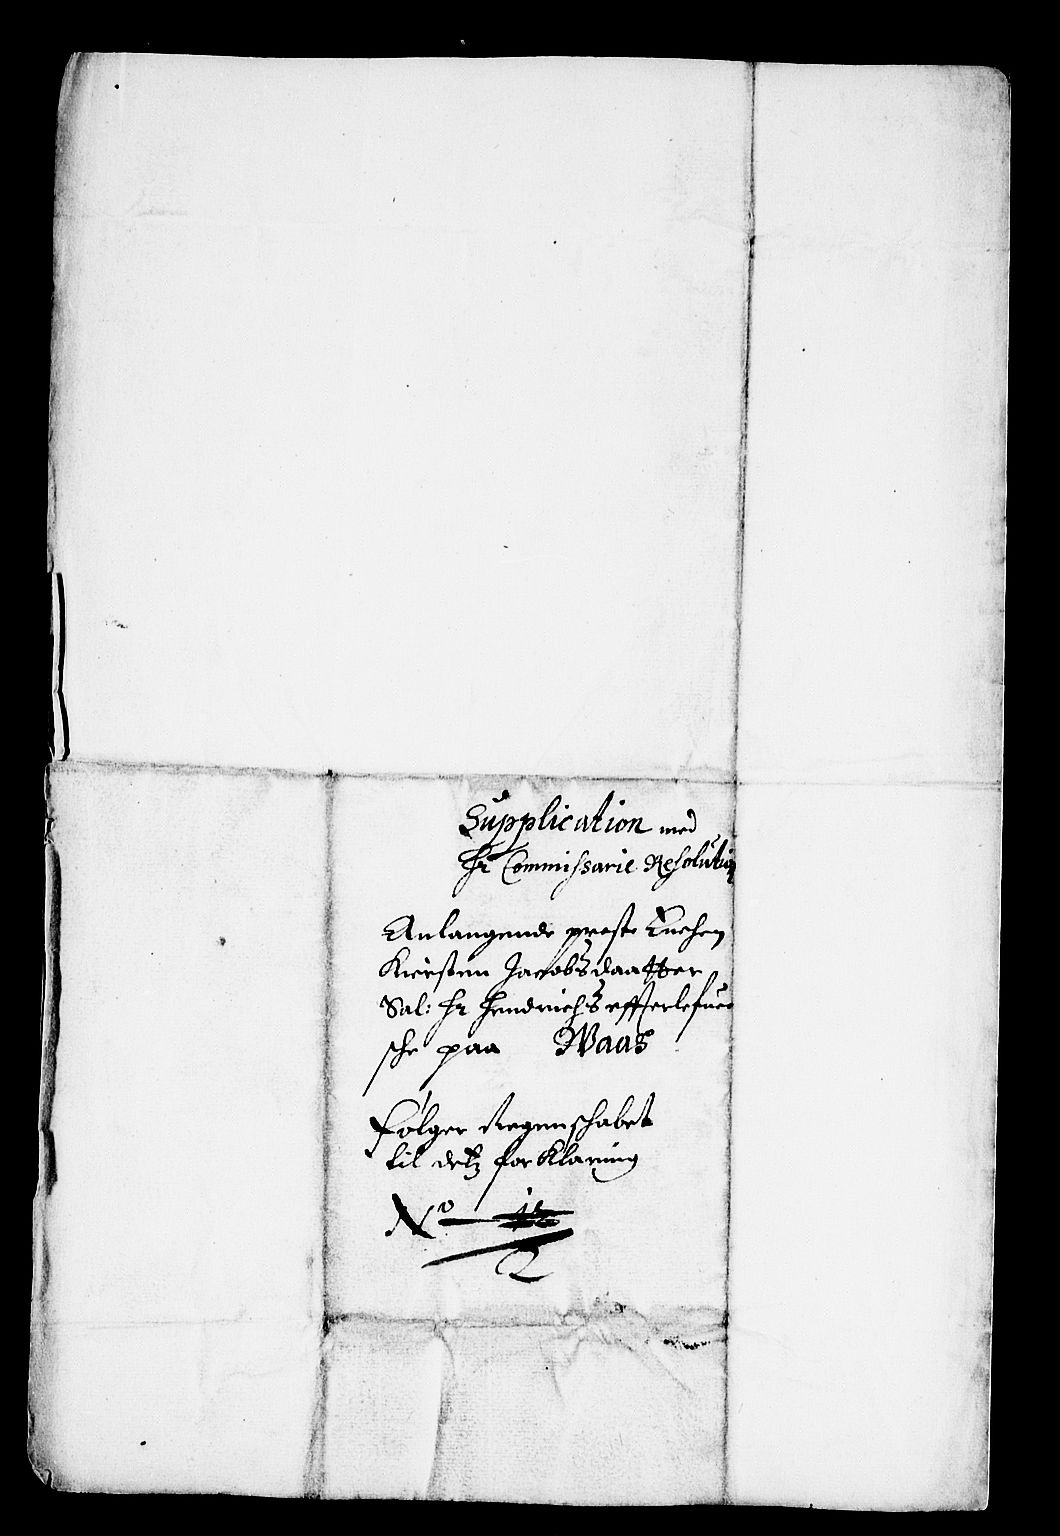 Supplication med
Hr Commissarie Resolution
Anlangende preste Enchen
Kiersten Jacobsdaatter
Sal: Hr Hendrichs effterlefuer
sche paa Waas
følger Regenschabet
til detz forKlaring
No 12
2